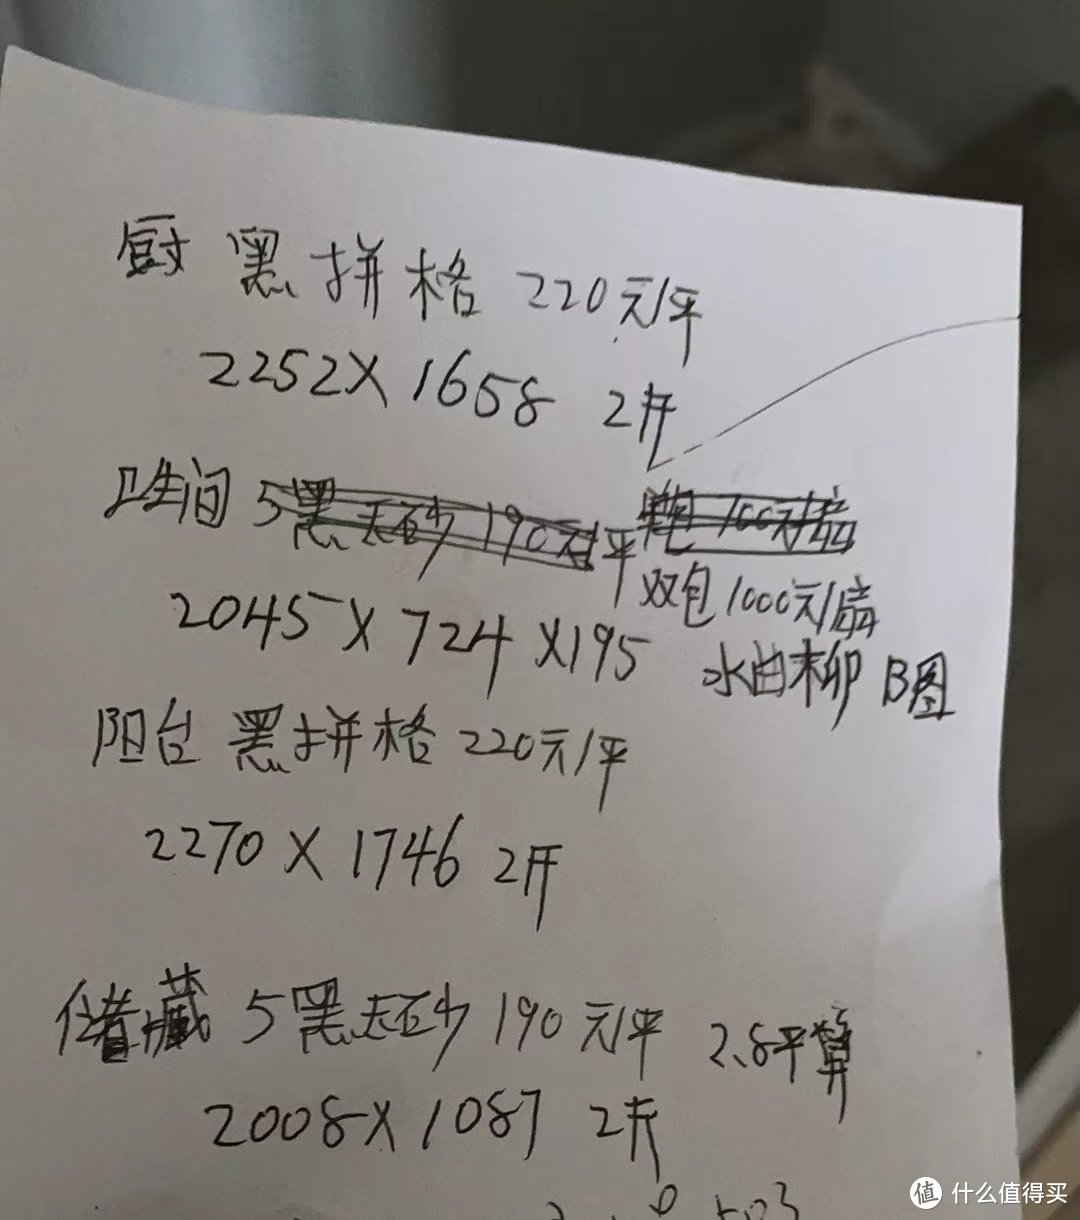 厨 黑拼格 220元/平
2252X1658 2开
卫生间 5黑无砂 190元/平 单包 100元/扇
双包1000元/扇
2045X724X195 水曲柳 B图
阳台 黑拼格 220元/平
2270X1746 2开
储藏 5黑无砂 190元/平 2.8平算
2008X1087 2开
值 什么值得买